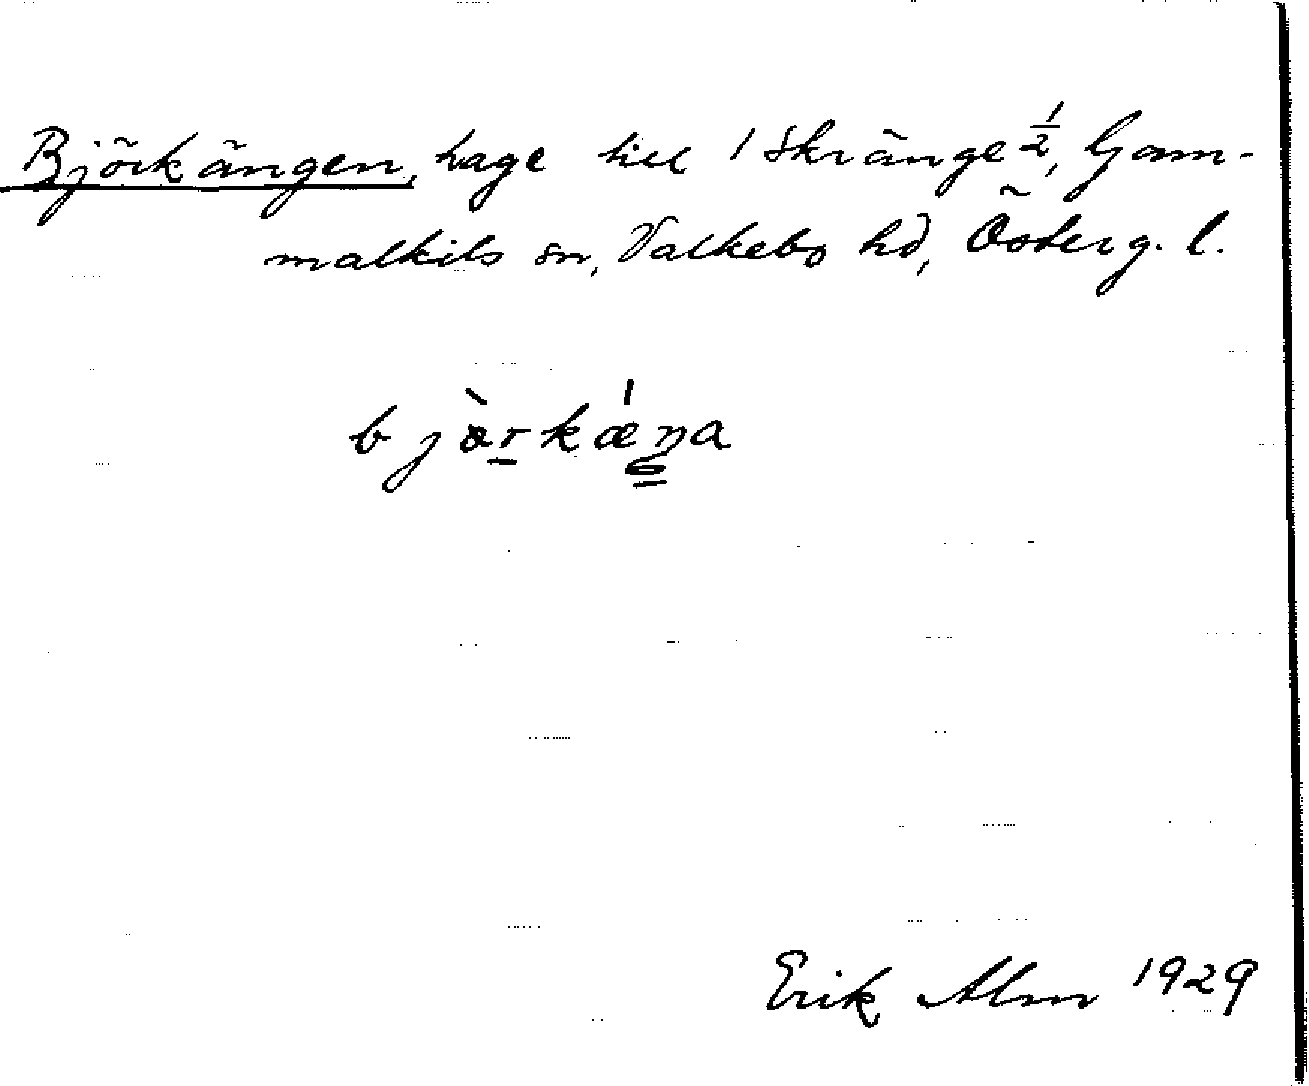 Björkängen, hage till 1 Skränge 1/2, Gam-
malkils sn, Valkebo hd, Österg. l.
bjɵ̀rkǽŋa
Erik Alm 1929